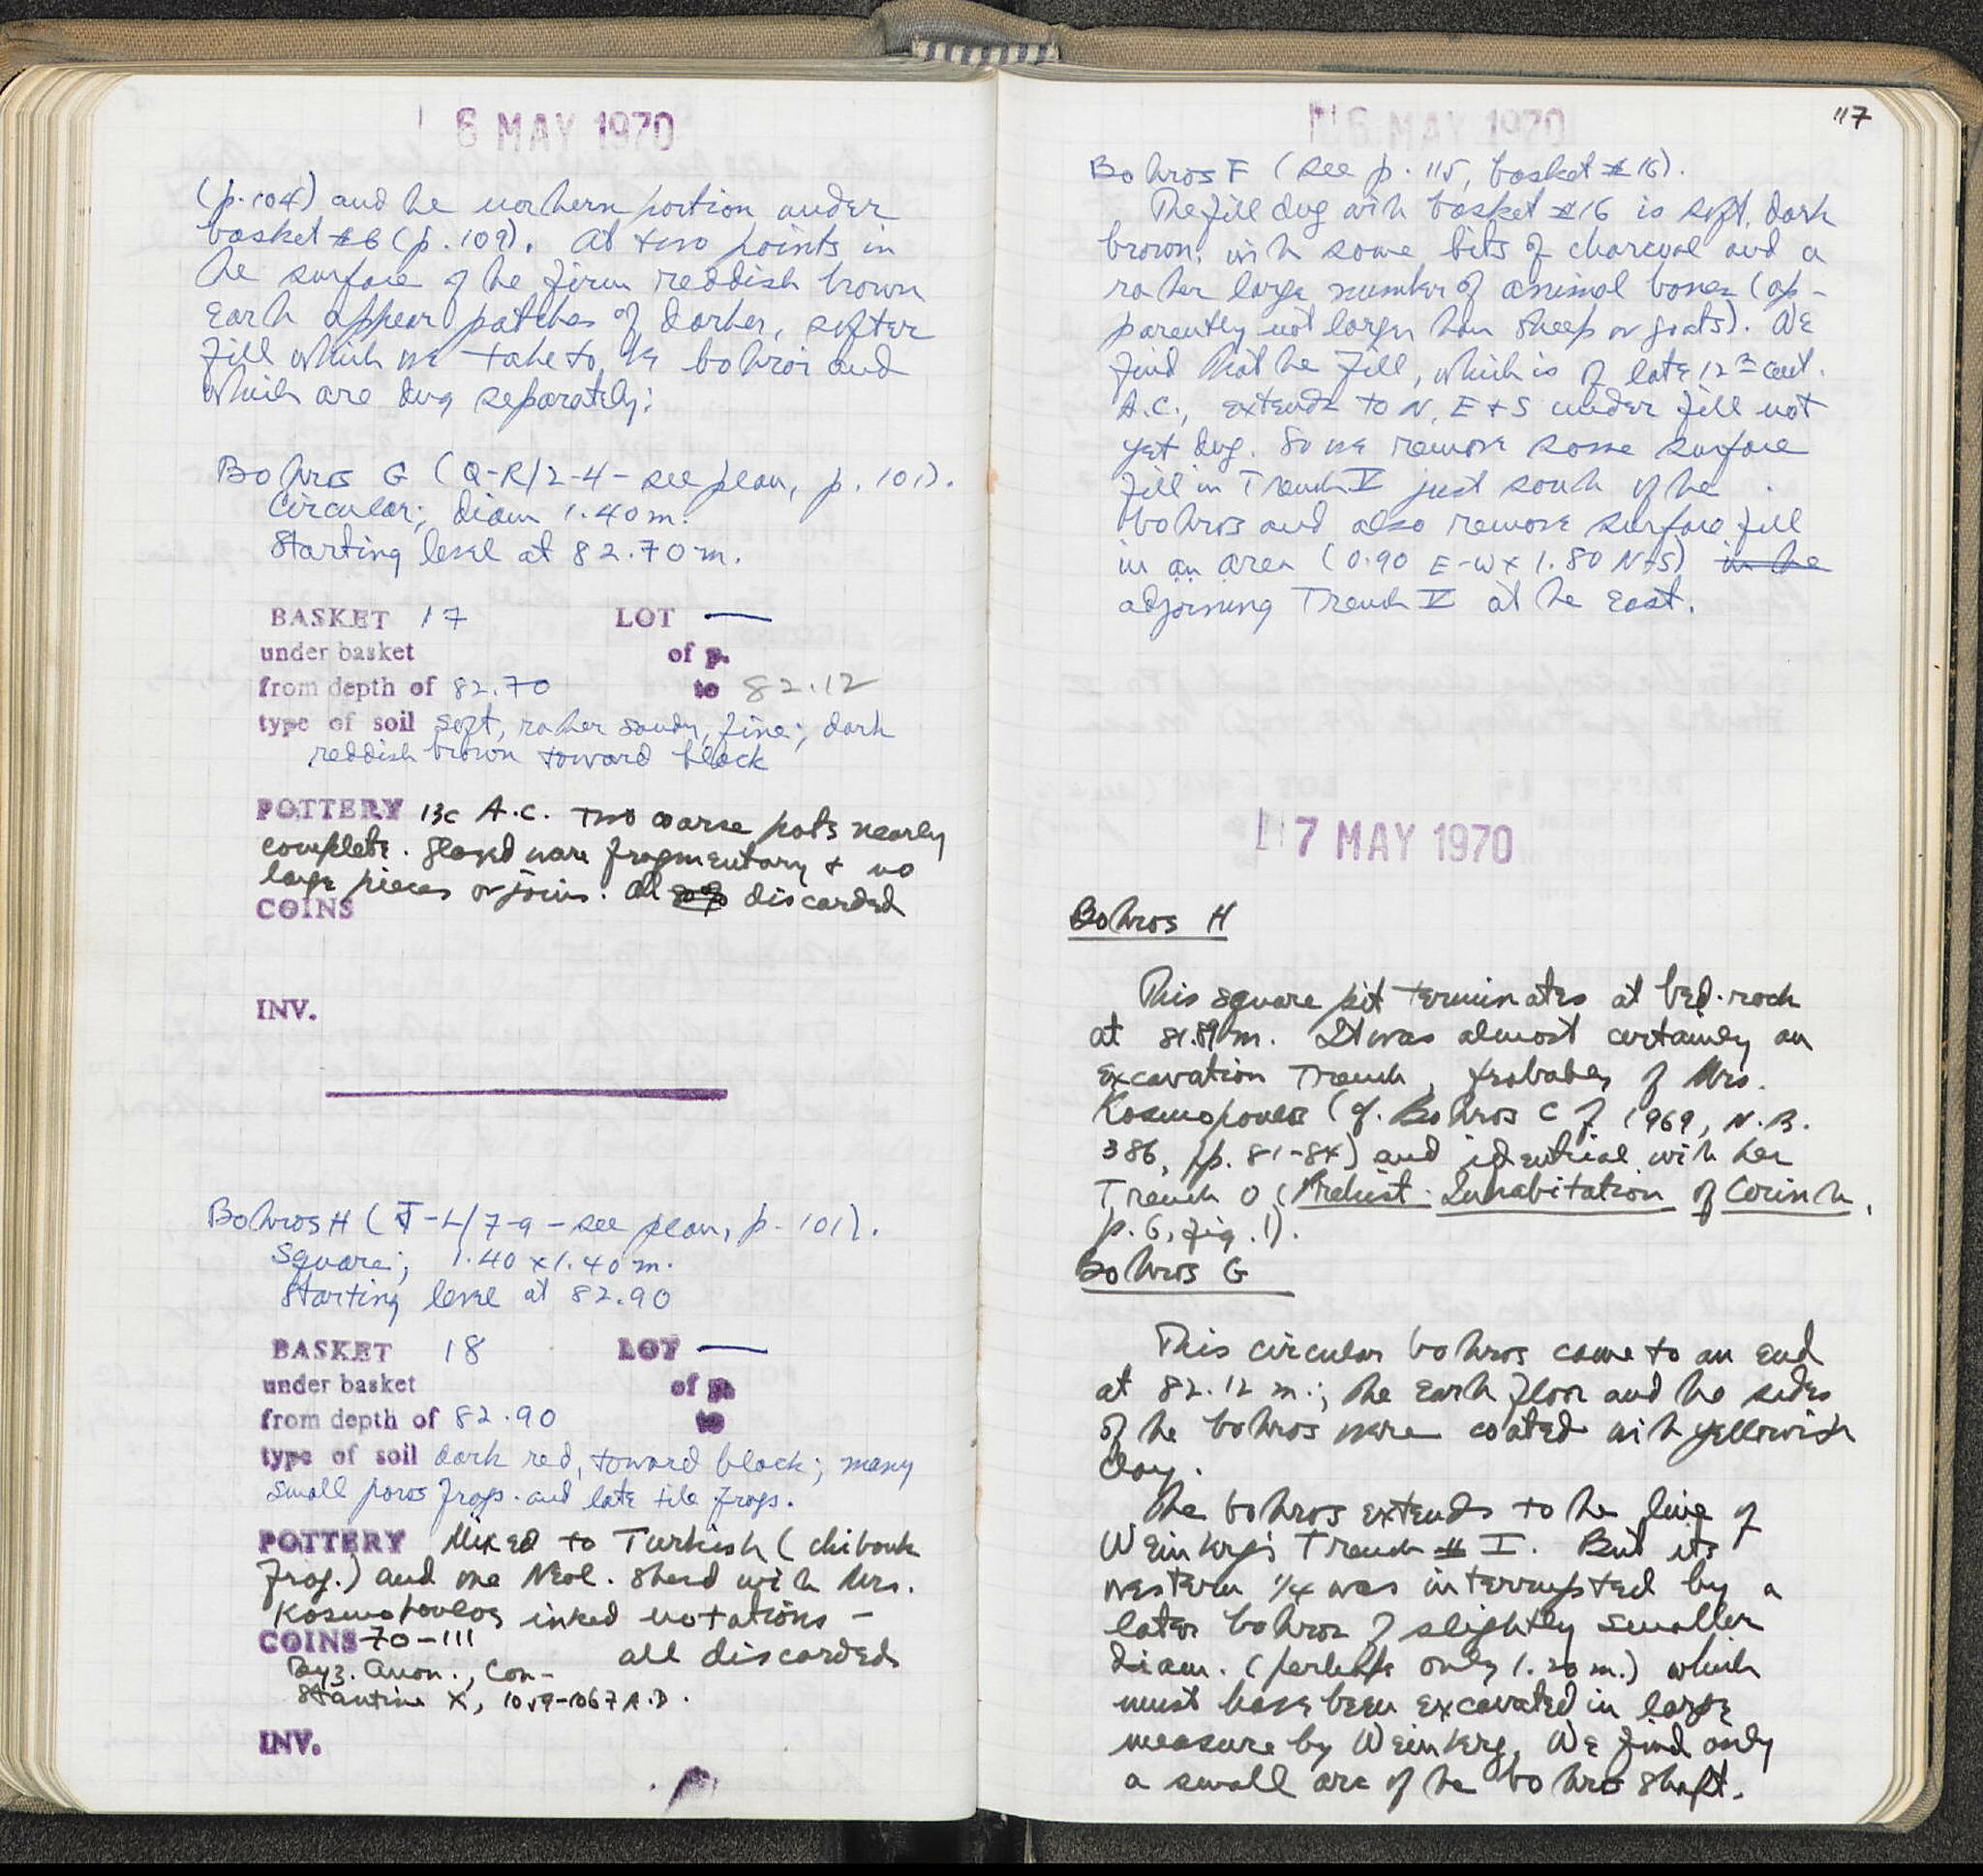 6 MAY 1970
(p. 104) and the northern portion under
basket #6 (p. 109). At two points in
the surface of the firm reddish brown
earth appear patches of darker, softer
fill which we take to be bothroi and
which are dug separately:
Bothros G (Q-R/2-4 - see plan, p. 101).
Circular; diam 1.40 m.
Starting level at 82.70 m.
BASKET 17 LOT —
under basket of p.
from depth of 82.70 to 82.12
type of soil soft, rather sandy, fine; dark
reddish brown toward black
POTTERY 13c A.C. Two coarse pots nearly
complete. Glazed ware fragmentary & no
large pieces or joins. All discarded
COINS
INV.
Bothros H (J-L/7-9 - see plan, p. 101).
Square; 1.40 x 1.40 m.
Starting level at 82.90
BASKET 18 LOT —
under basket of p.
from depth of 82.90 to
type of soil dark red, toward black; many
small poros frags. and late tile frags.
POTTERY Mixed to Turkish (chibouk
frag.) and one Neol. sherd with Mrs.
Kosmopoulos inked notations -
all discarded
COINS 70-111
Byz. Anon., Con-
stantine X, 1059-1067 A.D.
INV.
117
6 MAY 1970
Bothros F (see p. 115, basket #16).
The fill dug with basket #16 is soft, dark
brown, with some bits of charcoal and a
rather large number of animal bones (ap-
parently not larger than sheep or goats). We
find that the fill, which is of late 12th cent.
A.C., extends to N, E + S under fill not
yet dug. So we remove some surface
fill in Trench V just south of the
bothros and also remove surface fill
in an area (0.90 E-W x 1.80 N-S) in the
adjoining Trench V at the east.
7 MAY 1970
Bothros H
This square pit terminates at bed-rock
at 81.89 m. It was almost certainly an
excavation trench, probably of Mrs.
Kosmopoulos (cf. Bothros C of 1969, N.B.
386, pp. 81-84) and identical with her
Trench O (Prehist. Inhabitation of Corinth,
p. 6, fig. 1).
Bothros G
This circular bothros came to an end
at 82.12 m.; the earth floor and the sides
of the bothros were coated with yellowish
clay.
The bothros extends to the line of
Weinberg's Trench I. But its
western 1/4 was interrupted by a
later bothros of slightly smaller
diam. (perhaps only 1.20 m.) which
must have been excavated in large
measure by Weinberg. We find only
a small arc of the bothros shaft.